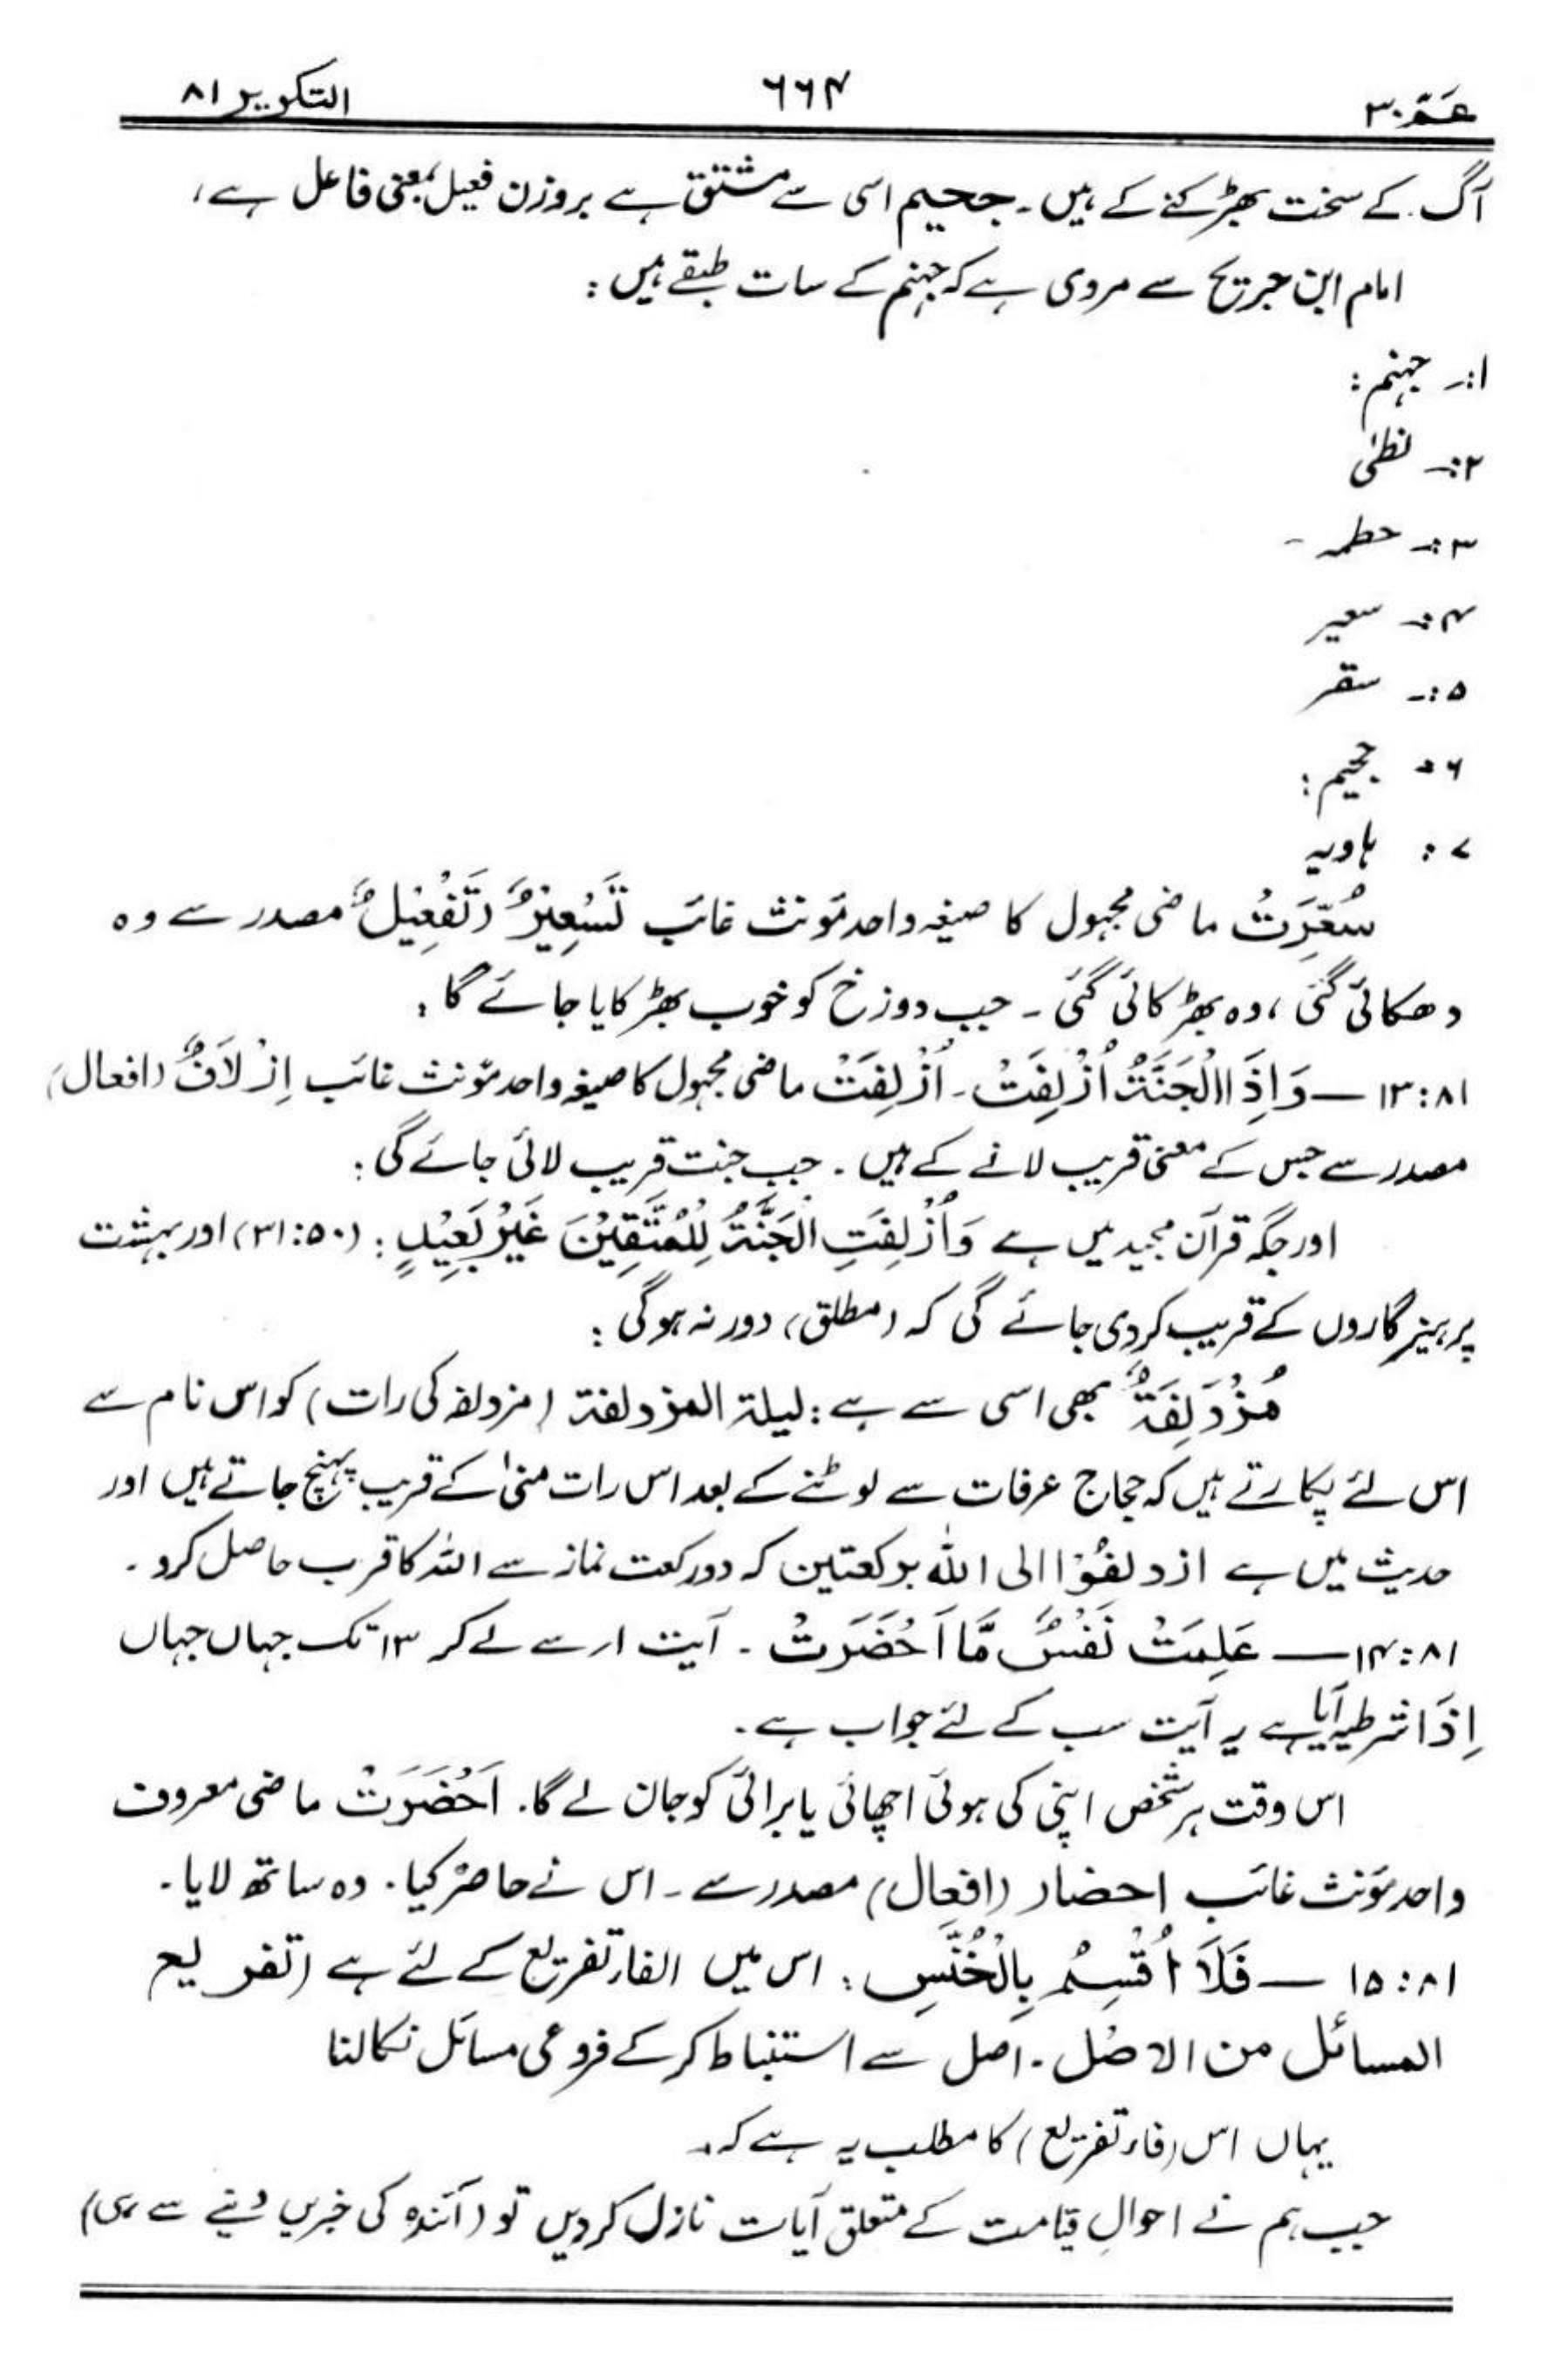 عَمّ ۳۰ ۶۶۴ التکویر ۸۱
آگ کے سخت بھڑکنے کے ہیں۔ جحیم اسی سے مشتق ہے بروزن فعیل بمعنی فاعل ہے،
امام ابن جریج سے مروی ہے کہ جہنم کے سات طبقے ہیں :
۱:۔ جہنم :
۲:۔ لظیٰ
۳:۔ حطمہ ۔
۴:۔ سعیر
۵:۔ سقر
۶۔ جحیم :
۷: ہاویہ
سُعِّرَتْ ماضی مجہول کا صیغہ واحد مؤنث غائب تَسْعِیْرٌ (تَفْعِیْلٌ) مصدر سے وہ
دھکائی گئی ، وہ بھڑکائی گئی ۔ جب دوزخ کو خوب بھڑکایا جائے گا :
۸۱:۱۳ — وَاِذَا الْجَنَّۃُ اُزْلِفَتْ۔ اُزْلِفَتْ ماضی مجہول کا صیغہ واحد مؤنث غائب اِزْلَافٌ (افعال)
مصدر سے جس کے معنی قریب لانے کے ہیں ۔ جب جنت قریب لائی جائے گی :
اور جگہ قرآن مجید میں ہے وَاُزْلِفَتِ الْجَنَّۃُ لِلْمُتَّقِیْنَ غَیْرَ بَعِیْدٍ : (۵۰:۳۱) اور بہشت
پرہیزگاروں کے قریب کردی جائے گی کہ (مطلق) دور نہ ہوگی :
مُزْدَلِفَۃٌ بھی اسی سے ہے : لیلۃ المزدلفۃ (مزدلفہ کی رات) کو اس نام سے
اس لئے پکارتے ہیں کہ حجاج عرفات سے لوٹنے کے بعد اس رات منیٰ کے قریب پہنچ جاتے ہیں اور
حدیث میں ہے ازدلفُوْا الی اللہ برکعتین کہ دو رکعت نماز سے اللہ کا قرب حاصل کرو ۔
۸۱:۱۴ — عَلِمَتْ نَفْسٌ مَّا اَحْضَرَتْ ۔ آیت ۱ سے لے کر ۱۳ تک جہاں جہاں
اِذَا شرطیہ آیا ہے یہ آیت سب کے لئے جواب ہے ۔
اس وقت ہر شخص اپنی کی ہوئی اچھائی یا برائی کو جان لے گا۔ اَحْضَرَتْ ماضی معروف
واحد مؤنث غائب احضار (افعال) مصدر سے ۔ اس نے حاضر کیا ۔ وہ ساتھ لایا ۔
۸۱:۱۵ — فَلَآ اُقْسِمُ بِالْخُنَّسِ : اس میں الفاء تفریع کے لئے ہے (تفریع
المسائل من الاصل ۔ اصل سے استنباط کرکے فروعی مسائل نکالنا
یہاں اس (فاء تفریع) کا مطلب یہ ہے کہ ۔
جب ہم نے احوالِ قیامت کے متعلق آیات نازل کردیں تو (آئندہ کی خبریں دینے سے ہی)